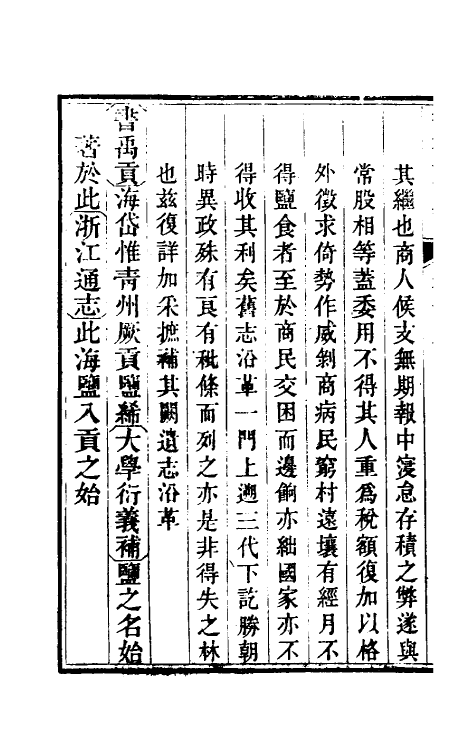 其繼也商人候支無期報中寖怠存積之弊遂與
常股相等蓋委用不得其人重為稅額復加以格
外徵求倚勢作威剝商病民窮村遠壤有經月不
得鹽食者至於商民交困而邊餉亦絀國家亦不
得收其利矣舊志沿革一門上遡三代下訖勝朝
時異政殊有良有秕條而列之亦是非得失之林
也茲復詳加采摭補其闕遺志沿革
書禹貢海岱惟青州厥貢鹽絺大學衍義補鹽之名始
著於此浙江通志此海鹽入貢之始